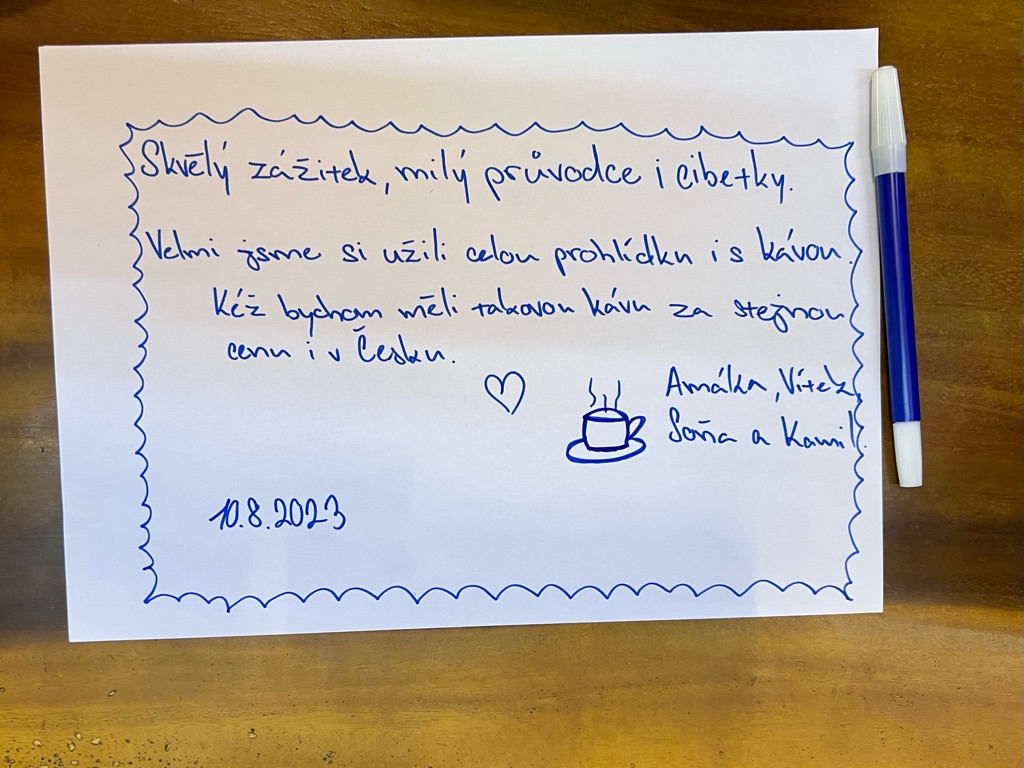 Skvělý zážitek, milý průvodce i cibetky.
Velmi jsme si užili celou prohlídku i s kávou.
Kéž bychom měli takovou kávu za stejnou
cenu i v Česku.
Amálka, Vítek,
Soňa a Kamil.
10.8.2023